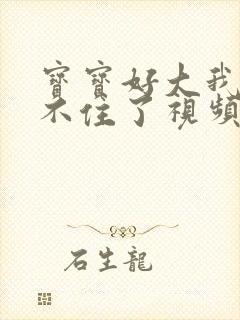 寶寶好大我
不住了視頻
石生龍